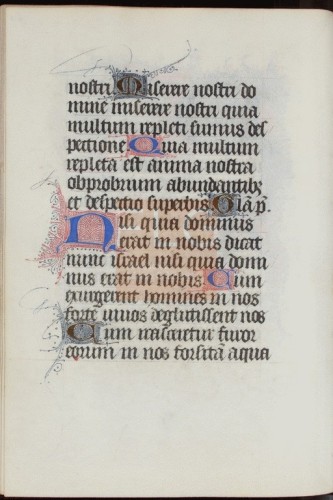 nostri Miserere nostri do
mine miserere nostri quia
multum repleti sumus des
pectione Quia multum
repleta est anima nostra
obprobrium abundantibz
et despectio superbis Gla p̄.
Nisi quia dominus
erat in nobis dicat
nunc israel nisi quia domi
nus erat in nobis Cum
exurgerent homines in nos
forte vivos deglutissent nos
Cum irasceretur furor
eorum in nos forsitā aqua